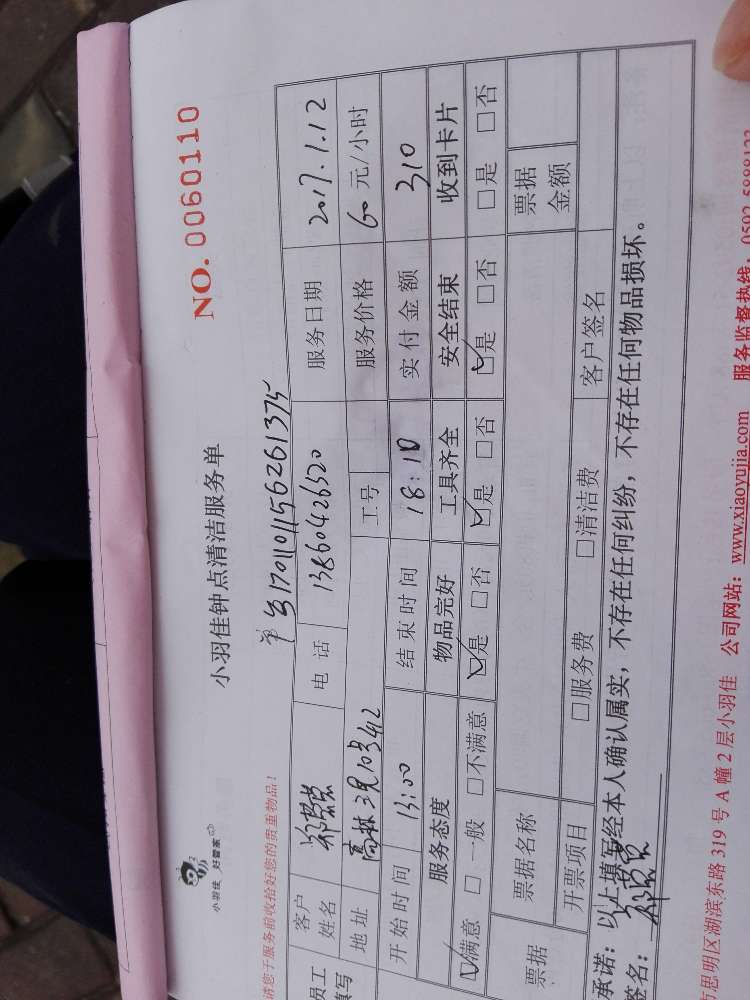 小羽佳 好管家
小羽佳钟点清洁服务单
NO. 0060110
请您于服务前收拾好您的贵重物品！
单号1701101156261375
员工
填写
客户
姓名
电 话 13860426520 服务日期 2017.1.12
地址
工号 服务价格 60 元/小时
开始时间 13:00 结束时间 18:10 实付金额 310
服务态度 物品完好 工具齐全 安全结束 收到卡片
☑满意 □一般 □不满意 ☑是 □否 ☑是 □否 ☑是 □否 □是 □否
票据
票据名称 票据
金额
开票项目 □服务费 □清洁费 客户签名
承诺：以上填写经本人确认属实，不存在任何纠纷，不存在任何物品损坏。
签名：
思明区湖滨东路 319 号 A 幢 2 层小羽佳 公司网站：www.xiaoyujia.com 服务监督热线：0592-5888123